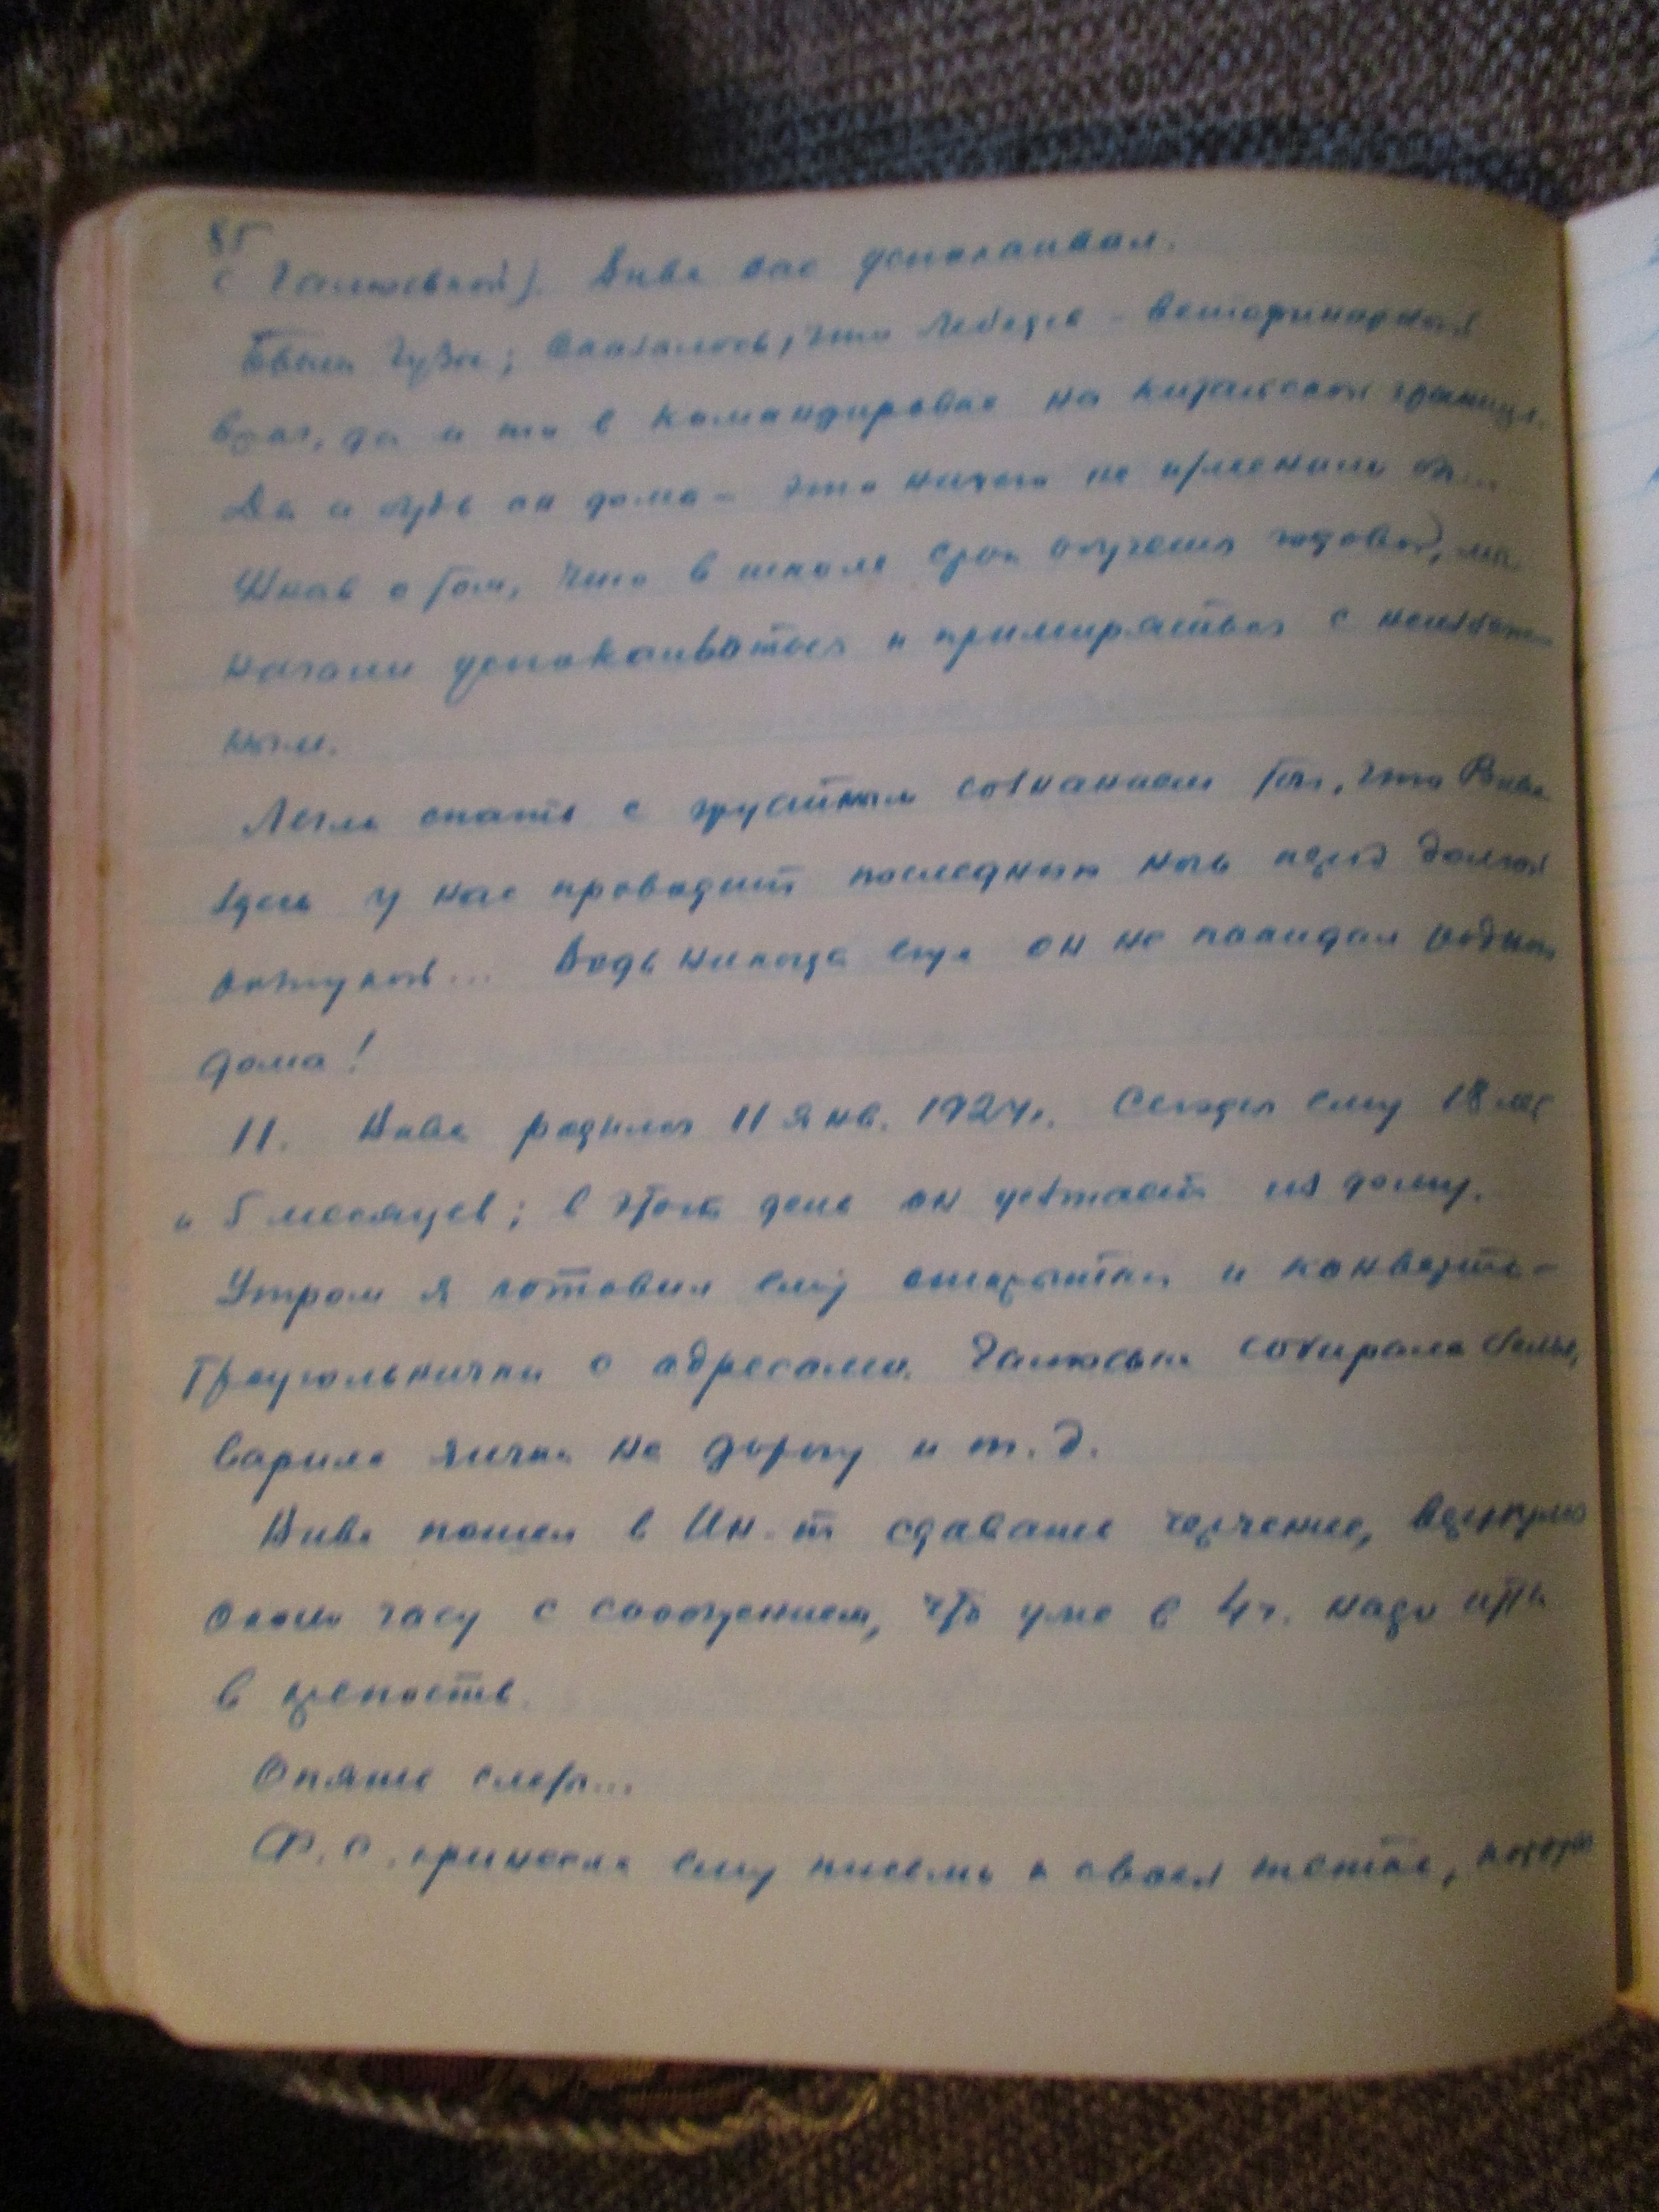 85
с Галюськой). Вива нас успокаивал.
Была Гуза; оказалось, что Лебедев - ветеринарный
врач, да и то в командировке на китайской границе.
Да и будь он дома - это ничего не изменило бы...
Узнав о том, что в школе срок обучения годовой, мы
начали успокаиваться и примиряться с неизбеж-
ным.
Легли спать с грустным сознанием того, что Вива
здесь у нас проводит последнюю ночь перед долгой
разлукой... Ведь никогда еще он не покидал родного
дома!
11. Вива родился 11 янв. 1924 г. Сегодня ему 18 лет
и 5 месяцев; в этот день он уезжает из дому.
Утром я готовил ему открытки и конверты-
треугольнички с адресами. Галюська собирала белье,
варила яички на дорогу и т. д.
Вива пошел в Ин-т сдавать черчение, вернулся
около часу с сообщением, что уже в 4 ч. надо идти
в крепость.
Опять слезы...
Ф. С. принесла ему письмо к своей тетке, которая